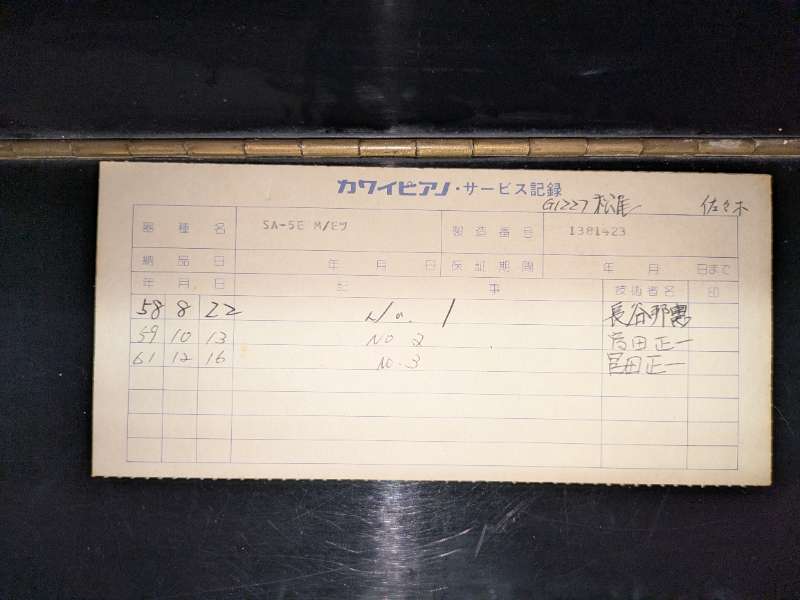 カワイピアノ・サービス記録
G1227 松尾 佐々木
器種名 SA-5E M/Eサ 製造番号 1381423
納品日 年 月 日 保証期間 年 月 日まで
年 月 日 記事 技術者名 印
58 8 22 No. 1 長谷部
59 10 13 No 2 田正一
61 12 16 No.3 田正一